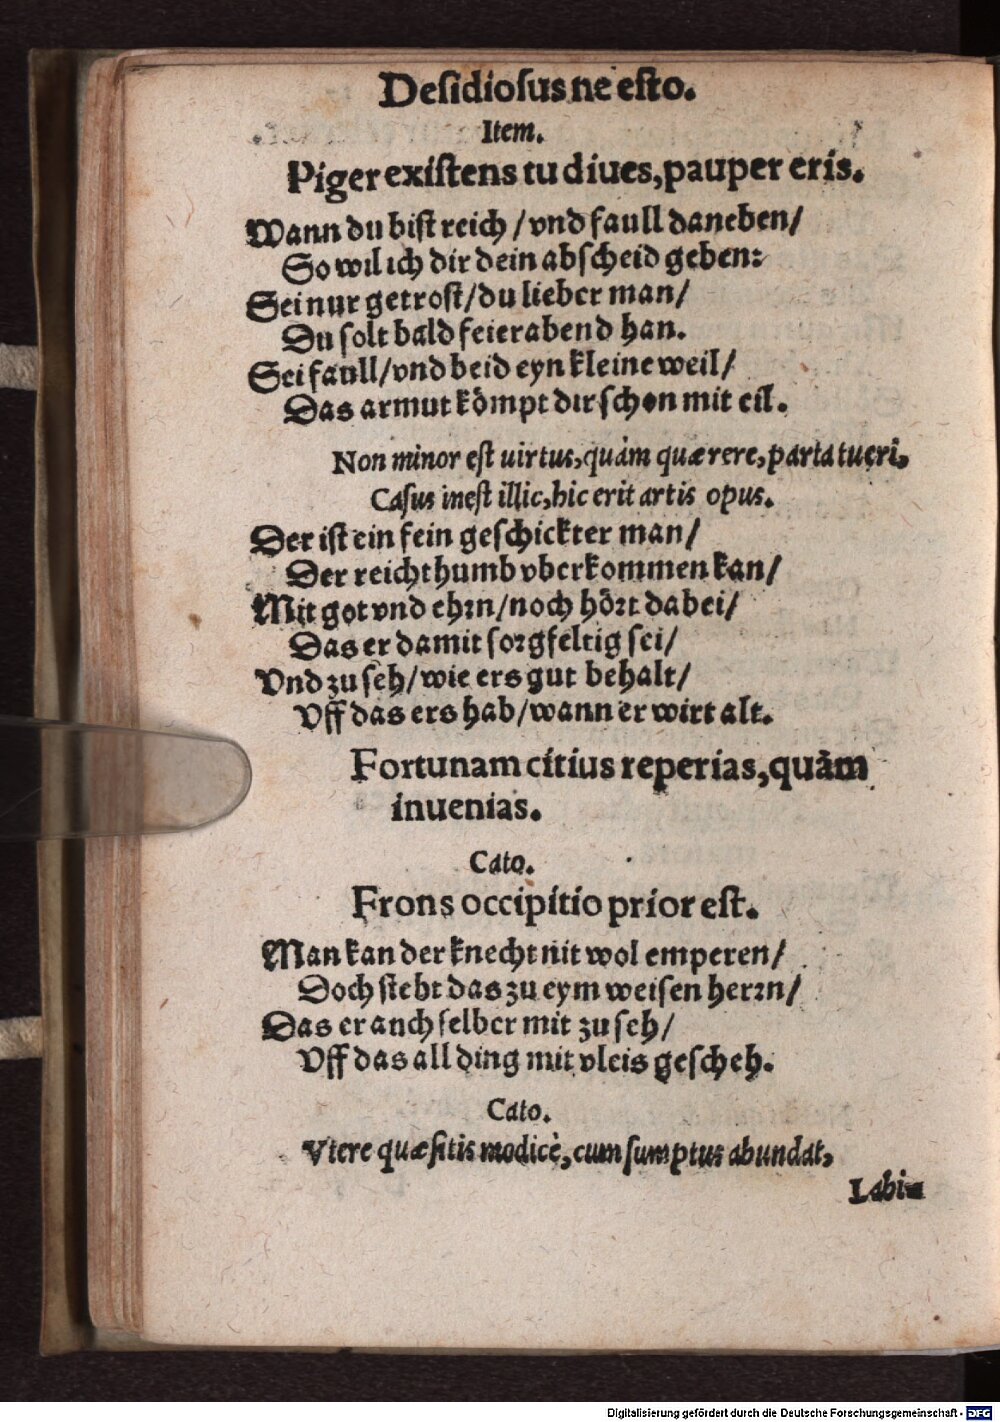 Deſidioſus ne eſto.
Item.
Piger exiſtens tu diues, pauper eris.
Wann du biſt reich / vnd faull daneben /
So wil ich dir dein abſcheid geben:
Sei nur getroſt / du lieber man /
Du ſolt bald feierabend han.
Sei faull / vnd beid eyn kleine weil /
Das armut kömpt dir ſchon mit eil.
Non minor eſt uirtus, quàm quærere, parta tueri,
Caſus ineſt illic, hic erit artis opus.
Der iſt ein fein geſchickter man /
Der reichthumb vberkommen kan /
Mit got vnd ehrn / noch hört dabei /
Das er damit ſorgfeltig ſei /
Vnd zu ſeh / wie ers gut behalt /
Vff das ers hab / wann er wirt alt.
Fortunam citius reperias, quàm
inuenias.
Cato.
Frons occipitio prior eſt.
Man kan der knecht nit wol emperen /
Doch ſteht das zu eym weiſen herrn /
Das er anch ſelber mit zu ſeh /
Vff das all ding mit vleis geſcheh.
Cato.
Vtere quæſitis modicè, cum ſumptus abundat,
Labi-
Digitalisierung gefördert durch die Deutsche Forschungsgemeinschaft - DFG